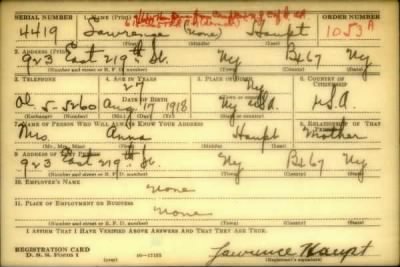 SERIAL NUMBER 1. NAME (Print) ORDER NUMBER
4419 Lawrence (none) Haupt 1053A
(First) (Middle) (Last)
2. ADDRESS (Print)
923 East 219th St. Ny Bx 67 Ny
(Number and street or R. F. D. number) (Town) (County) (State)
3. TELEPHONE 4. AGE IN YEARS 5. PLACE OF BIRTH 6. COUNTRY OF CITIZENSHIP
27 Ny
DATE OF BIRTH
Ol. 5-5260 Aug 17 1918 U.S.A. U.S.A.
(Exchange) (Number) (Mo.) (Day) (Yr.) (State or country)
7. NAME OF PERSON WHO WILL ALWAYS KNOW YOUR ADDRESS 8. RELATIONSHIP OF THAT PERSON
Mrs. Anna Haupt Mother
(Mr., Mrs., Miss) (First) (Middle) (Last)
9. ADDRESS OF THAT PERSON
923 East 219th St. Ny Bx 67 Ny
(Number and street or R. F. D. number) (Town) (County) (State)
10. EMPLOYER'S NAME
None
11. PLACE OF EMPLOYMENT OR BUSINESS
None
(Number and street or R. F. D. number) (Town) (County) (State)
I AFFIRM THAT I HAVE VERIFIED ABOVE ANSWERS AND THAT THEY ARE TRUE.
REGISTRATION CARD
D. S. S. Form 1 16-17105 Lawrence Haupt
(Registrant's signature)